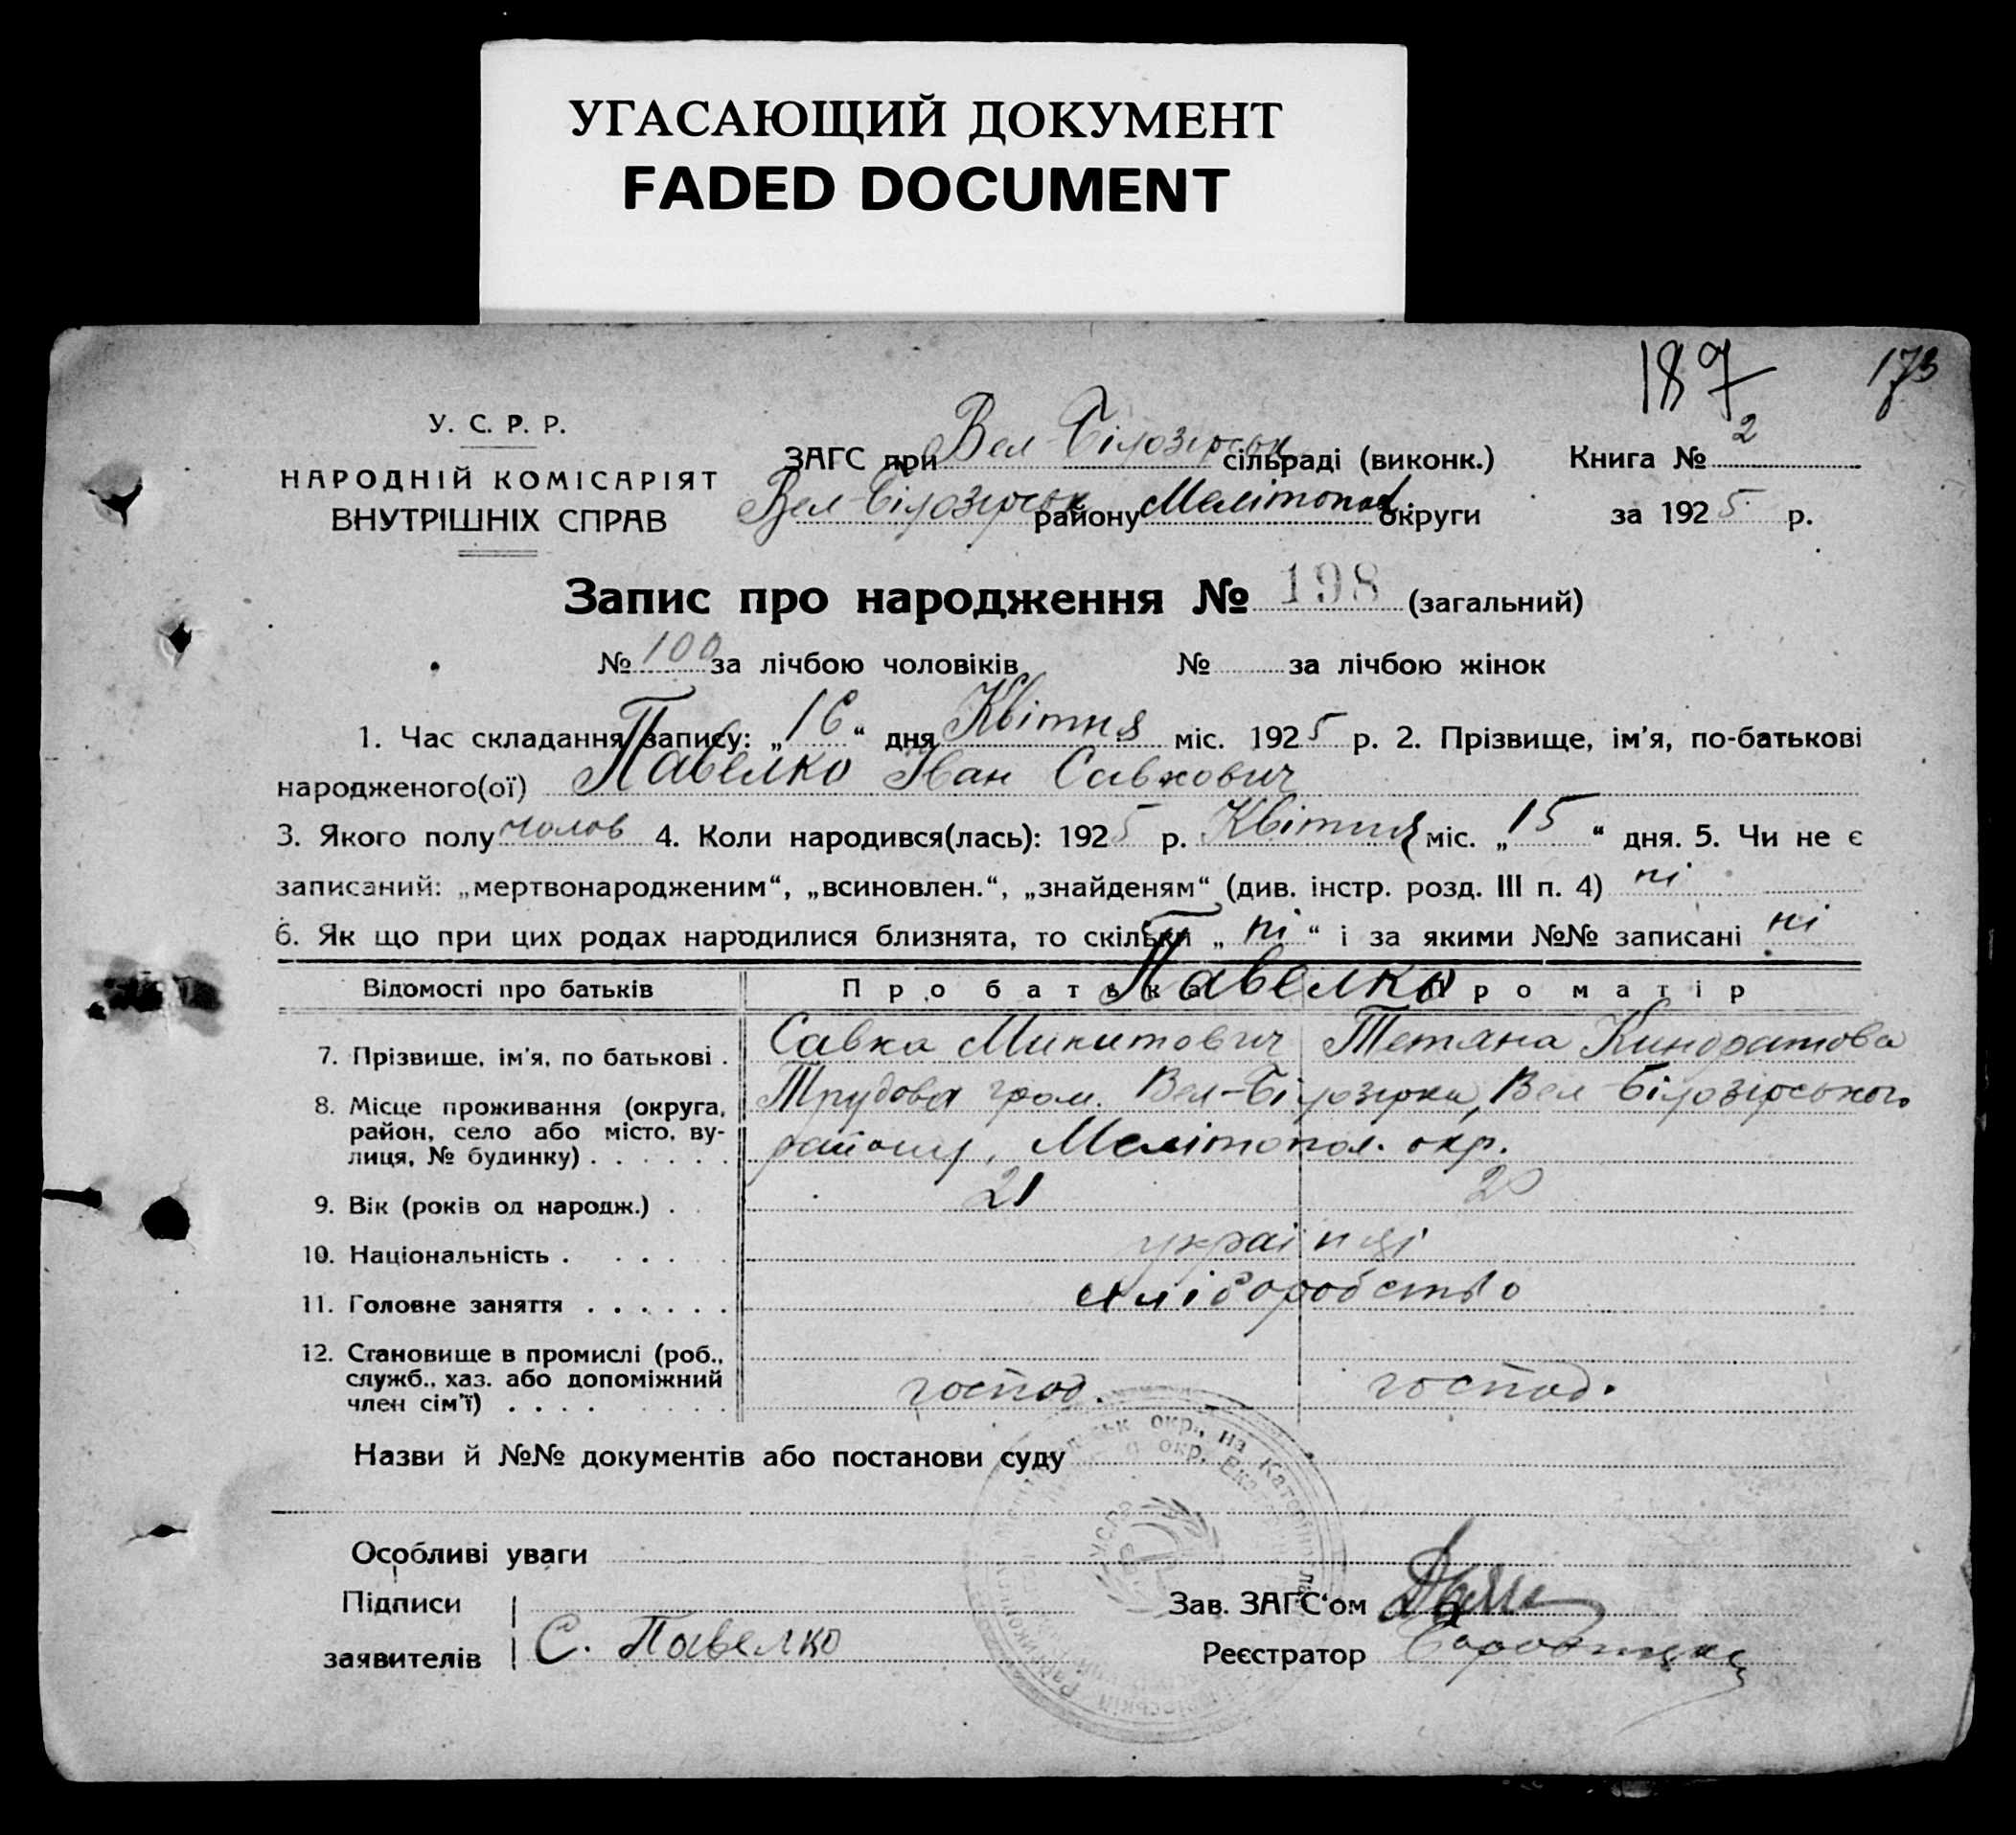 УГАСАЮЩИЙ ДОКУМЕНТ
FADED DOCUMENT
187
173
У. С. Р. Р.
НАРОДНІЙ КОМІСАРІЯТ
ВНУТРІШНІХ СПРАВ
ЗАГС при Вел-Білозірськ сільраді (виконк.)
Вел-Білозірськ району Мелітопол. округи
Книга № 2
за 1925 р.
Запис про народження № 198 (загальний)
№ 100 за лічбою чоловіків № за лічбою жінок
1. Час складання запису: „16“ дня Квітня міс. 1925 р. 2. Прізвище, ім’я, по-батькові
народженого(ої) Павелко Іван Савкович
3. Якого полу чолов 4. Коли народився(лась): 1925 р. Квітня міс. „15“ дня. 5. Чи не є
записаний: „мертвонародженим“, „всиновлен.“, „знайденям“ (див. інстр. розд. III п. 4) ні
6. Як що при цих родах народилися близнята, то скільки „ні“ і за якими №№ записані ні
Відомості про батьків Про батька Про матір
Павелко
7. Прізвище, ім’я, по батькові . Савка Микитович Тетяна Киндратова
8. Місце проживання (округа, Трудова гром. Вел-Білозірка, Вел Білозірського
район, село або місто, ву-
лиця, № будинку) . . . . . . району, Мелітопол. окр.
9. Вік (років од народж.) . 21 20
10. Національність . . . . . українці
11. Головне заняття . . . . . . хліборобство
12. Становище в промислі (роб.,
служб., хаз. або допоміжний
член сім’ї) . . . . господ. господ.
Назви й №№ документів або постанови суду
Особливі уваги
Підписи
заявителів С. Павелко
Зав. ЗАГС‘ом
Реєстратор